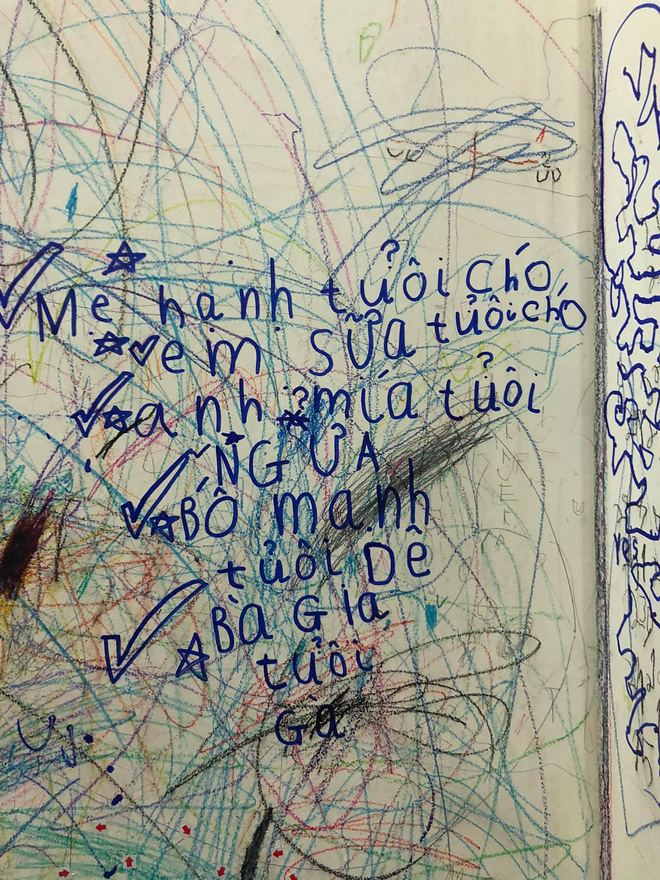 Mẹ hạnh tưổi chó
em sữa tưổi chó
anh mía tưổi
NGỰA
BỐ mạnh
tưổi DÊ
Bà Gìa
tưổi
Gà